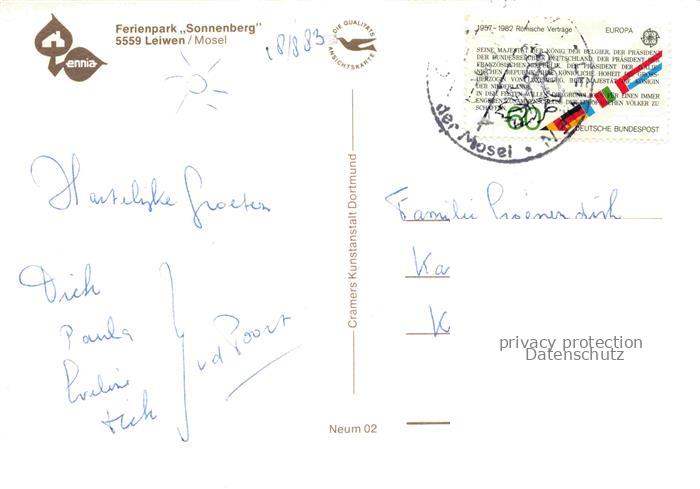 Ferienpark „Sonnenberg"
5559 Leiwen/Mosel
ennia
18/8 83
DIE QUALITÄTS
ANSICHTSKARTE
1957-1982 Römische Verträge EUROPA
SEINE MAJESTÄT DER KÖNIG DER BELGIER, DER PRÄSIDENT
DER BUNDESREPUBLIK DEUTSCHLAND, DER PRÄSIDENT DER
FRANZÖSISCHEN REPUBLIK, DER PRÄSIDENT DER ITALIE-
NISCHEN REPUBLIK, IHRE KÖNIGLICHE HOHEIT DIE GROSS-
HERZOGIN VON LUXEMBURG, IHRE MAJESTÄT DIE KÖNIGIN
DER NIEDERLANDE
IN DEM FESTEN WILLEN, DIE GRUNDLAGEN FÜR EINEN IMMER
ENGEREN ZUSAMMENSCHLUSS DER EUROPÄISCHEN VÖLKER ZU
SCHAFFEN
60
DEUTSCHE BUNDESPOST
der Mosel
Hartelijke Groeten
Dick
Paula
Eveline
Dick
vd Poort
Cramers Kunstanstalt Dortmund
Neum 02
Familie
Ka
K
privacy protection
Datenschutz